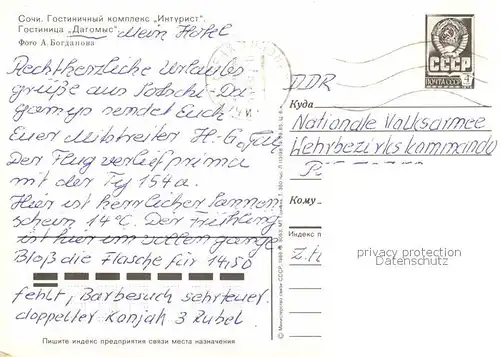 Сочи. Гостиничный комплекс „Интурист“.
Гостиница „Дагомыс“ Mein Hotel
Фото А. Богданова
Rechtherzliche Urlaubs
grüße aus Sotschi-Da-
gomys sendet Euch
Euer Mitstreiter H.-G.
Der Flug verlief prima
mit der Ty 154a.
Hier ist herrlicher Sonnen
schein 14°C. Der Frühling
ist hier im vollen gange
Bloß die Flasche für 14,50
fehlt, Barbesuch sehr teuer.
doppelter Konjak 3 Rubel
Пишите индекс предприятия связи места назначения
СССР
ПОЧТА СССР
4
DDR
Куда
Nationale Volksarmee
Wehrbezirkskommando
Кому
Индекс п
z.H
privacy protection
Datenschutz